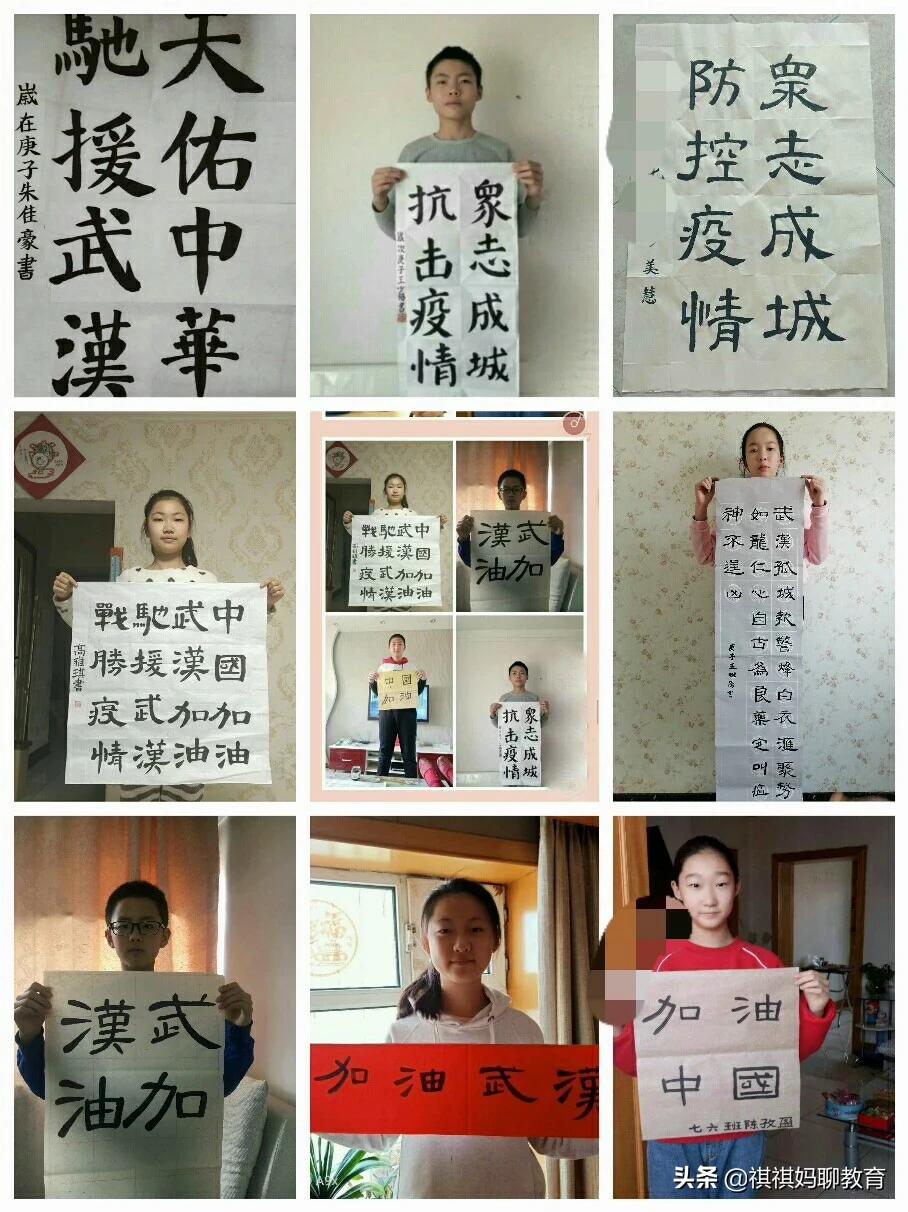 天佑中華
馳援武漢
嵗在庚子朱佳豪書
眾志成城
抗击疫情
眾志成城
防控疫情
美慧
中國加油
武漢加油
馳援武漢
戰勝疫情
高雅琪書
中國加油
武漢加油
馳援武漢
戰勝疫情
武漢
加油
中國
加油
眾志成城
抗击疫情
武漢孤城警烽白衣滙聚势
如龍仁心自古為良藥定叫瘟
神不逞凶
武漢
加油
加油武漢
加油
中國
七六班陈孜盈
头条 @祺祺妈聊教育